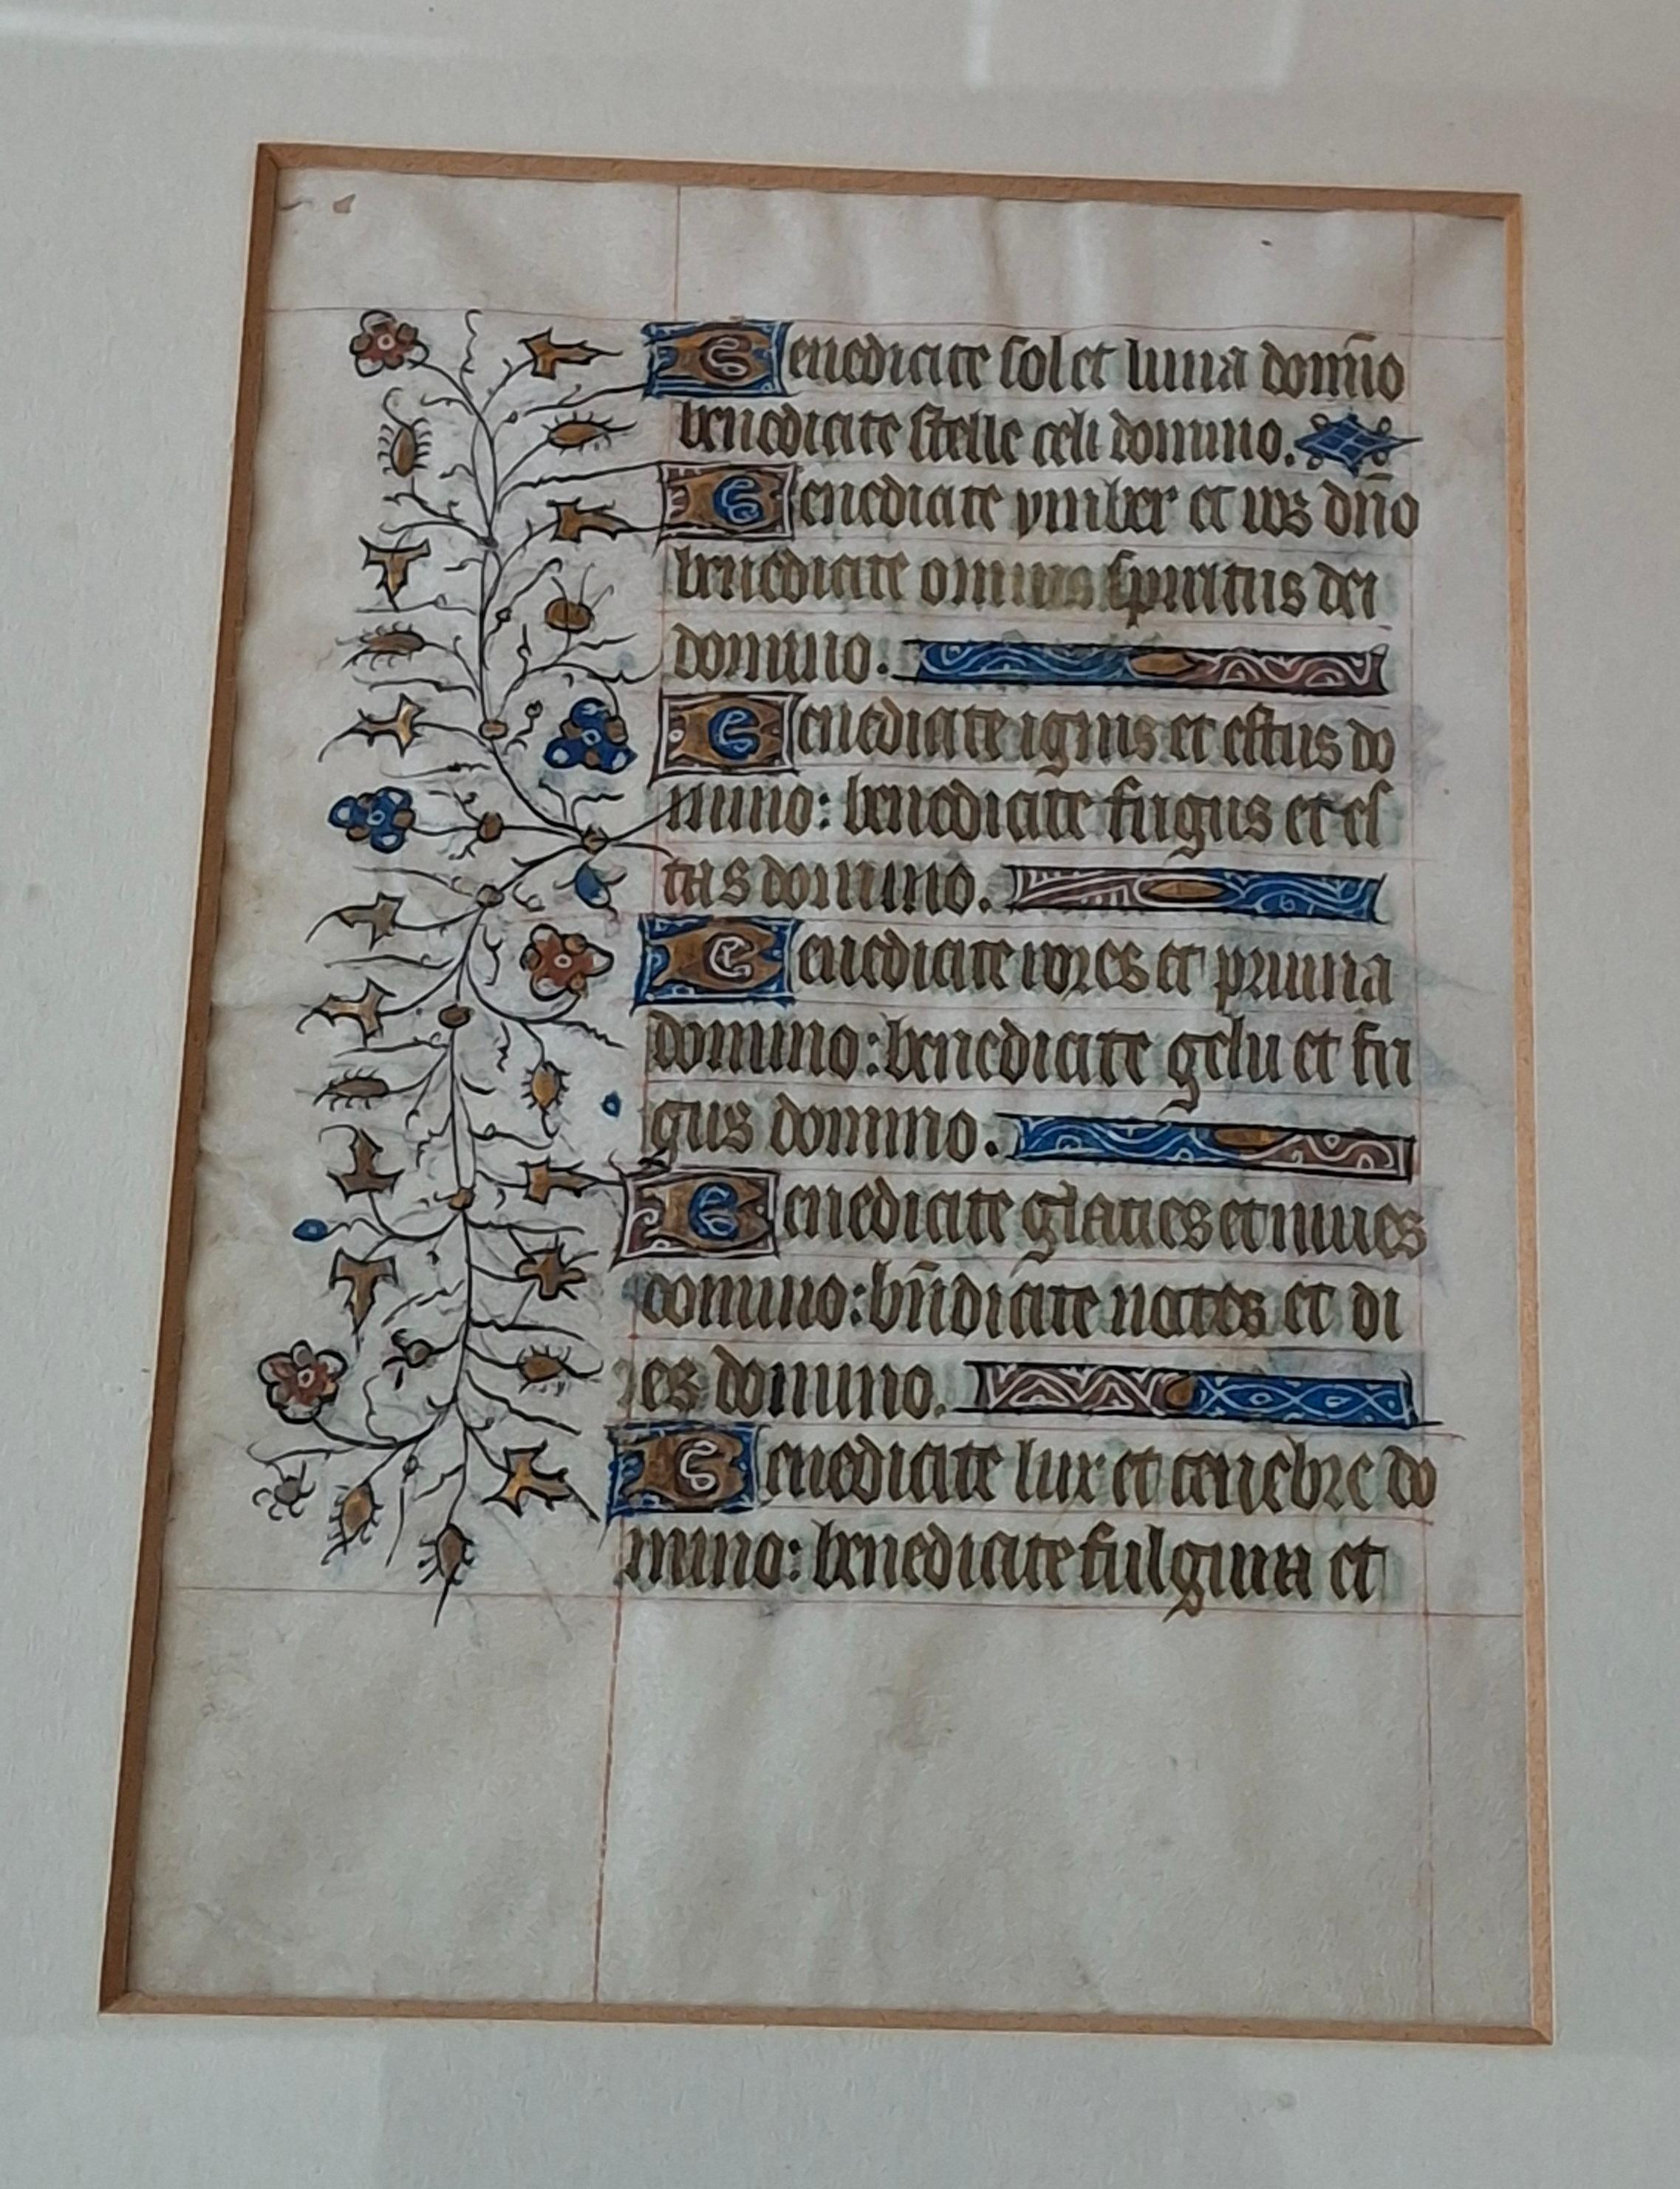 Benedicite sol et luna domīno
benedicite stelle celi domino.
Benedicite ymber et ros dn̄o
benedicite omnis spiritus dei
domino.
Benedicite ignis et estus do
mino: benedicite frigus et es
tas domino.
Benedicite rores et pruina
domino: benedicite gelu et fri
gus domino.
Benedicite glacies et nives
domino: bn̄dicite noctes et di
es domino.
Benedicite lux et tenebre do
mino: benedicite fulgura et